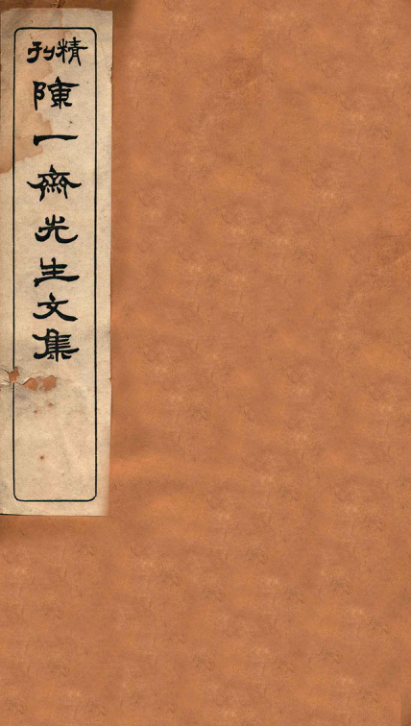 精刊
陳一齋先生文集